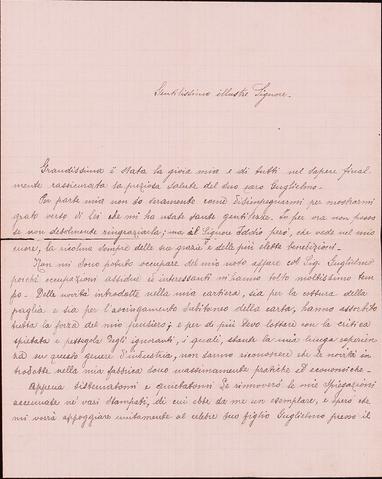 Gentilissimo illustre Signore.
Grandissima è stata la gioia mia e di tutti nel sapere final-
mente rassicurata la preziosa salute del suo caro Guglielmo.
Per parte mia non so veramente come disimpegnarmi per mostrarmi
grato verso di Lei che mi ha usate tante gentilezze. Io per ora non posso
se non debolmente ringraziarla; ma il Signore Iddio però, che vede nel mio
cuore, la ricolmi sempre delle sue grazie e delle più elette benedizioni.
Non mi sono potuto occupare del mio noto affare col Sig. Guglielmo
perchè occupazioni assidue e interessanti m'hanno tolto moltissimo tem-
po. Delle novità introdotte nella mia cartiera, sia per la cottura della
paglia e sia per l'asciugamento subitoneo della carta, hanno assorbito
tutta la forza del mio pensiero; e per di più devo lottare con la critica
spietata e pettegola degli ignoranti, i quali, stante la mia lunga esperien-
za su questo genere d'industria, non sanno riconoscere che le novità in-
trodotte nella mia fabbrica sono massimamente pratiche ed economiche.
Appena sistematomi e quietatomi Le rinnoverò le mie spiegazioni
accennate ne' vari stampati, di cui ebbe da me un esemplare, e spero che
mi vorrà appoggiare unitamente al celebre suo figlio Guglielmo presso il